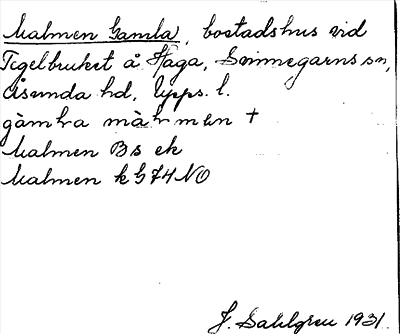 Malmen Gamla, bostadshus vid
Tegelbruket å Haga, Svinnegarns sn,
Åsunda hd, Upps. l.
gàmḷa màḷmen +
Malmen Bs ek
Malmen k G74 NO
J. Sahlgren 1931.